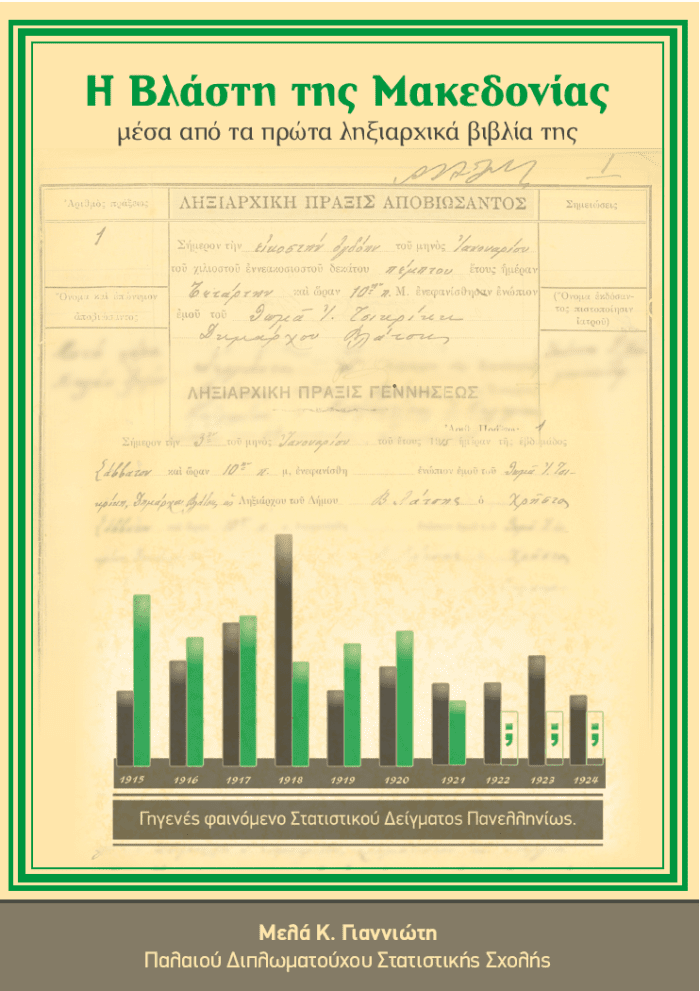 Η Βλάστη της Μακεδονίας
μέσα από τα πρώτα ληξιαρχικά βιβλία της
1
Ἀριθμὸς πράξεως
ΛΗΞΙΑΡΧΙΚΗ ΠΡΑΞΙΣ ΑΠΟΒΙΩΣΑΝΤΟΣ
Σημειώσεις
1
Σήμερον τὴν εἰκοστὴν ὀγδόην τοῦ μηνὸς Ἰανουαρίου
τοῦ χιλιοστοῦ ἐννεακοσιοστοῦ δεκάτου πέμπτου ἔτους ἡμέραν
Τετάρτην καὶ ὥραν 10ην π. Μ. ἐνεφανίσθησαν ἐνώπιον
ἐμοῦ τοῦ Θωμᾶ Ἰ. Τσικρίκη
Δημάρχου Βλάτσης
Ὄνομα καὶ ἐπώνυμον
ἀποβιώσαντος
(Ὄνομα ἐκδόσαν-
τος πιστοποίησιν
ἰατροῦ)
ΛΗΞΙΑΡΧΙΚΗ ΠΡΑΞΙΣ ΓΕΝΝΗΣΕΩΣ
1
Σήμερον τὴν 3ην τοῦ μηνὸς Ἰανουαρίου τοῦ ἔτους 191 ἡμέραν τῆς ἑβδομάδος
Σάββατον καὶ ὥραν 10ην π. μ. ἐνεφανίσθη ἐνώπιον ἐμοῦ τοῦ Θωμᾶ Ἰ. Τσι-
κρίκη, Δημάρχου Βλάτσης ὡς Ληξιάρχου τοῦ Δήμου Βλάτσης ὁ Χρῆστος
; ; ;
1915 1916 1917 1918 1919 1920 1921 1922 1923 1924
Γηγενές φαινόμενο Στατιστικού Δείγματος Πανελληνίως.
Μελά Κ. Γιαννιώτη
Παλαιού Διπλωματούχου Στατιστικής Σχολής